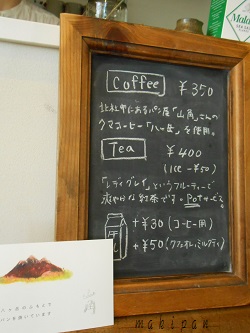 Coffee ¥350
北杜市にあるパン屋「山角」さんの
クマコーヒー「八ヶ岳」を使用。
Tea ¥400
(ICE -¥50)
「レディグレイ」というフルーティーで
爽やかな紅茶です。Potサービス
+¥30 (コーヒー用)
+¥50 (カフェオレ, ミルクティ)
makipan